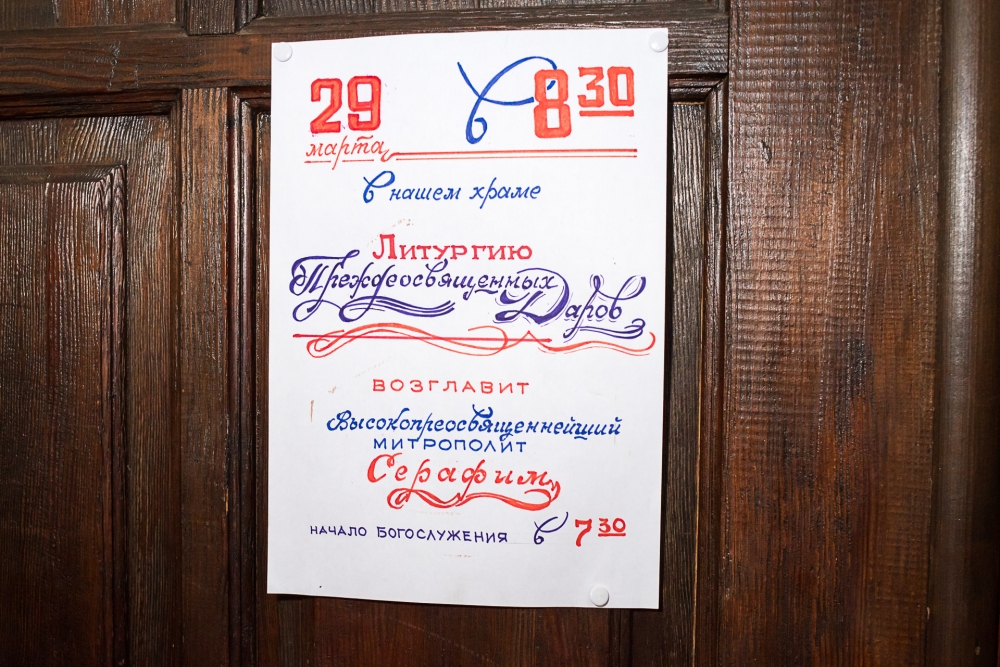 29 в 8 30
марта
в нашем храме
Литургию
Преждеосвященных
Даров
ВОЗГЛАВИТ
Высокопреосвященнейший
МИТРОПОЛИТ
Серафим
НАЧАЛО БОГОСЛУЖЕНИЯ в 7 30